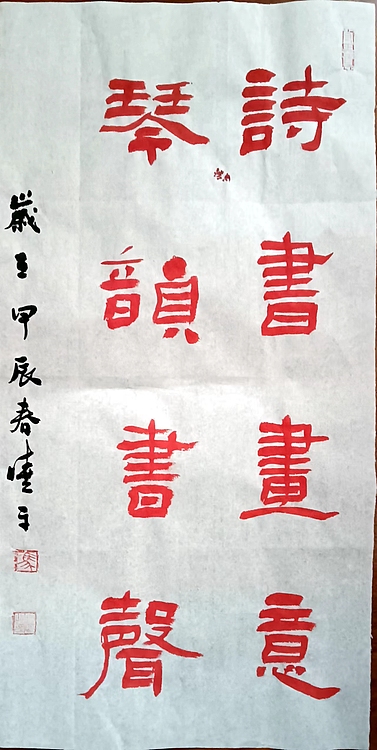 詩書畫意
琴韻書聲
歲在甲辰春